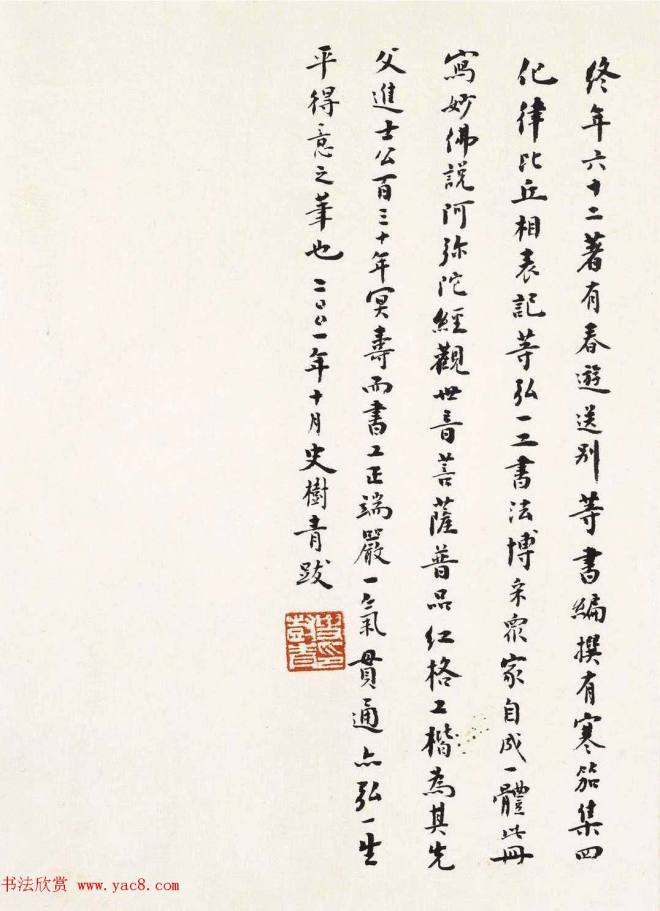 終年六十二著有春遊送別等書編撰有寒笳集四
化律比丘相表記等弘一工書法博采眾家自成一體此冊
寫妙佛說阿弥陀經觀世音菩薩普品紅格工楷為其先
父進士公百三十年冥壽而書工正端嚴一氣貫通亦弘一生
平得意之筆也二〇〇一年十月史樹青跋
书法欣赏 www.yac8.com